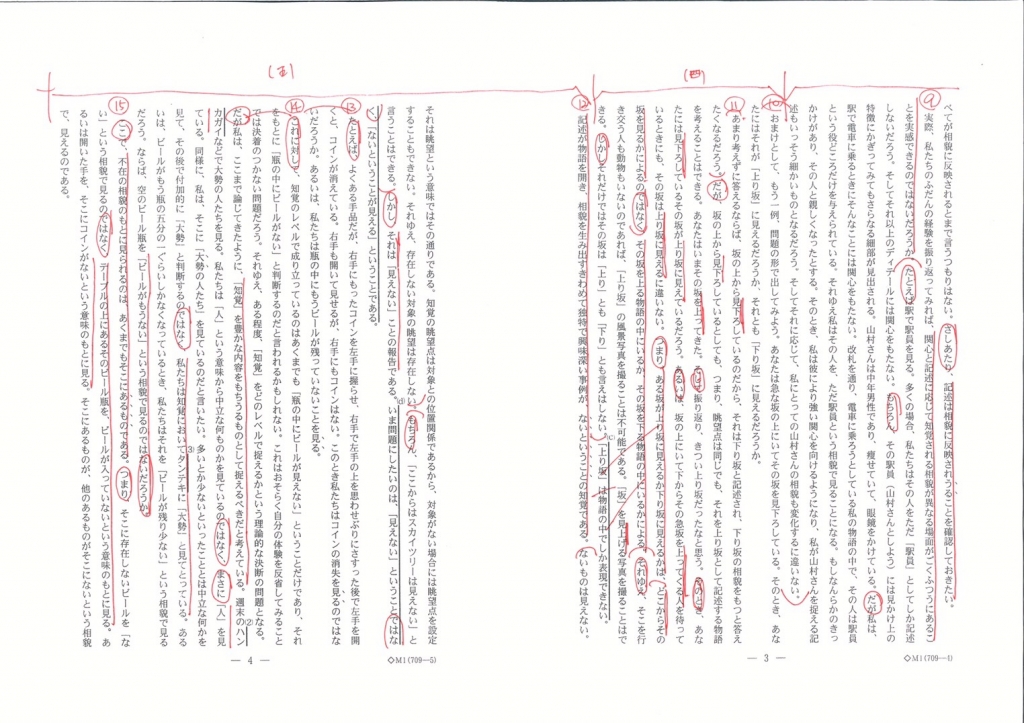 (五)
(四)
べてが相貌に反映されるとまで言うつもりはない。さしあたり、記述は相貌に反映されうることを確認しておきたい。
⑨実際、私たちのふだんの経験を振り返ってみれば、関心と記述に応じて知覚される相貌が異なる場面がごくふつうにあるこ
とを実感できるのではないだろうか。たとえば駅で駅員を見る。多くの場合、私たちはその人をただ「駅員」としてしか記述
しないだろう。そしてそれ以上のディテールには関心をもたない。もちろん、その駅員(山村さんとしよう)には見かけ上の
特徴にかぎってみてもさらなる細部が見出される。山村さんは中年男性であり、痩せていて、眼鏡をかけている。だが私は、
駅で電車に乗るときにそんなことには関心をもたない。改札を通り、電車に乗ろうとしている私の物語の中で、その人は駅員
という役どころだけを与えられている。それゆえ私はその人を、ただ駅員という相貌で見ることになる。もしなんらかのきっ
かけがあり、その人と親しくなったとする。そのとき、私は彼により強い関心を向けるようになり、私が山村さんを捉える記
述もいっそう細かいものとなるだろう。そしてそれに応じて、私にとっての山村さんの相貌も変化するに違いない。
⑩おまけとして、もう一例、問題の形で出してみよう。あなたは急な坂の上にいてその坂を見下ろしている。そのとき、あな
たにはそれが「上り坂」に見えるだろうか、それとも「下り坂」に見えるだろうか。
⑪あまり考えずに答えるならば、坂の上から見下ろしているのだから、それは下り坂と記述され、下り坂の相貌をもつと答え
たくなるだろう。だが、坂の上から見下ろしているとしても、つまり、眺望点は同じでも、それを上り坂として記述する物語
を考えることはできる。あなたはいまその坂を上ってきた。そして振り返り、きつい上り坂だったなと思う。そのとき、あな
たには見下ろしているその坂が上り坂に見えているだろう。あるいは、坂の上にいて下からその急坂を上ってくる人を待って
いるときにも、その坂は上り坂に見えるに違いない。つまり、ある坂が上り坂に見えるか下り坂に見えるかは、どこからその
坂を見るかによるのではなく、その坂を上る物語の中にいるか、その坂を下る物語の中にいるかによる。それゆえ、そこを行
き交う人も動物もいないのであれば、「上り坂」の風景写真を撮ることは不可能である。「坂」を見上げる写真を撮ることはで
きる。しかしそれだけではその坂は「上り」とも「下り」とも言えはしない。(c)「上り坂」は物語の中でしか表現できない。
⑫記述が物語を開き、相貌を生み出すきわめて独特で興味深い事例が、ないということの知覚である。ないものは見えない。
― 3 ―
◇M1(709―4)
それは眺望という意味ではその通りである。知覚の眺望点は対象との位置関係であるから、対象がない場合には眺望点を設定
することもできない。それゆえ、存在しない対象の眺望は存在しない。もちろん、「ここからはスカイツリーは見えない」と
言うことはできる。しかし、それは「見えない」ことの報告である。(d)いま問題にしたいのは、「見えない」ということではな
く、「ないということが見える」ということである。
⑬たとえば、よくある手品だが、右手にもったコインを左手に握らせ、右手で左手の上を思わせぶりにさすった後で左手を開
くと、コインが消えている。右手も開いて見せるが、右手にもコインはない。このとき私たちはコインの消失を見るのではな
いだろうか。あるいは、私たちは瓶の中にもうビールが残っていないことを、見る。
⑭これに対して、知覚のレベルで成り立っているのはあくまでも「瓶の中にビールが見えない」ということだけであり、それ
をもとに「瓶の中にビールがない」と判断するのだと言われるかもしれない。これはおそらく自分の体験を反省してみること
では決着のつかない問題だろう。それゆえ、ある程度、「知覚」をどのレベルで捉えるかという理論的な決断の問題となる。
だが私は、ここまで論じてきたように、「知覚」を豊かな内容をもちうるものとして捉えるべきだと考えている。週末のハン
(2)
カガイなどで大勢の人たちを見る。私たちは「人」という意味から中立な何ものかを見ているのではなく、まさに「人」を見
ている。同様に、私は、そこに「大勢の人たち」を見ているのだと言いたい。多いとか少ないといったこととは中立な何かを
見て、その後で付加的に「大勢」と判断するのではなく、私たちは知覚においてタンテキに「大勢」と見てとっている。ある
(3)
いは、ビールがもう瓶の五分の一ぐらいしかなくなっているとき、私たちはそれを「ビールが残り少ない」という相貌で見る
だろう。ならば、空のビール瓶を、「ビールがもうない」という相貌で見るのではないだろうか。
⑮ここで、不在の相貌のもとに見られるのは、あくまでもそこにあるものである。つまり、そこに存在しないビールを「な
い」という相貌で見るのではなく、テーブルの上にあるそのビール瓶を、ビールが入っていないという意味のもとに見る。あ
るいは開いた手を、そこにコインがないという意味のもとに見る。そこにあるものが、他のあるものがそこにないという相貌
で、見えるのである。
― 4 ―
◇M1(709―5)